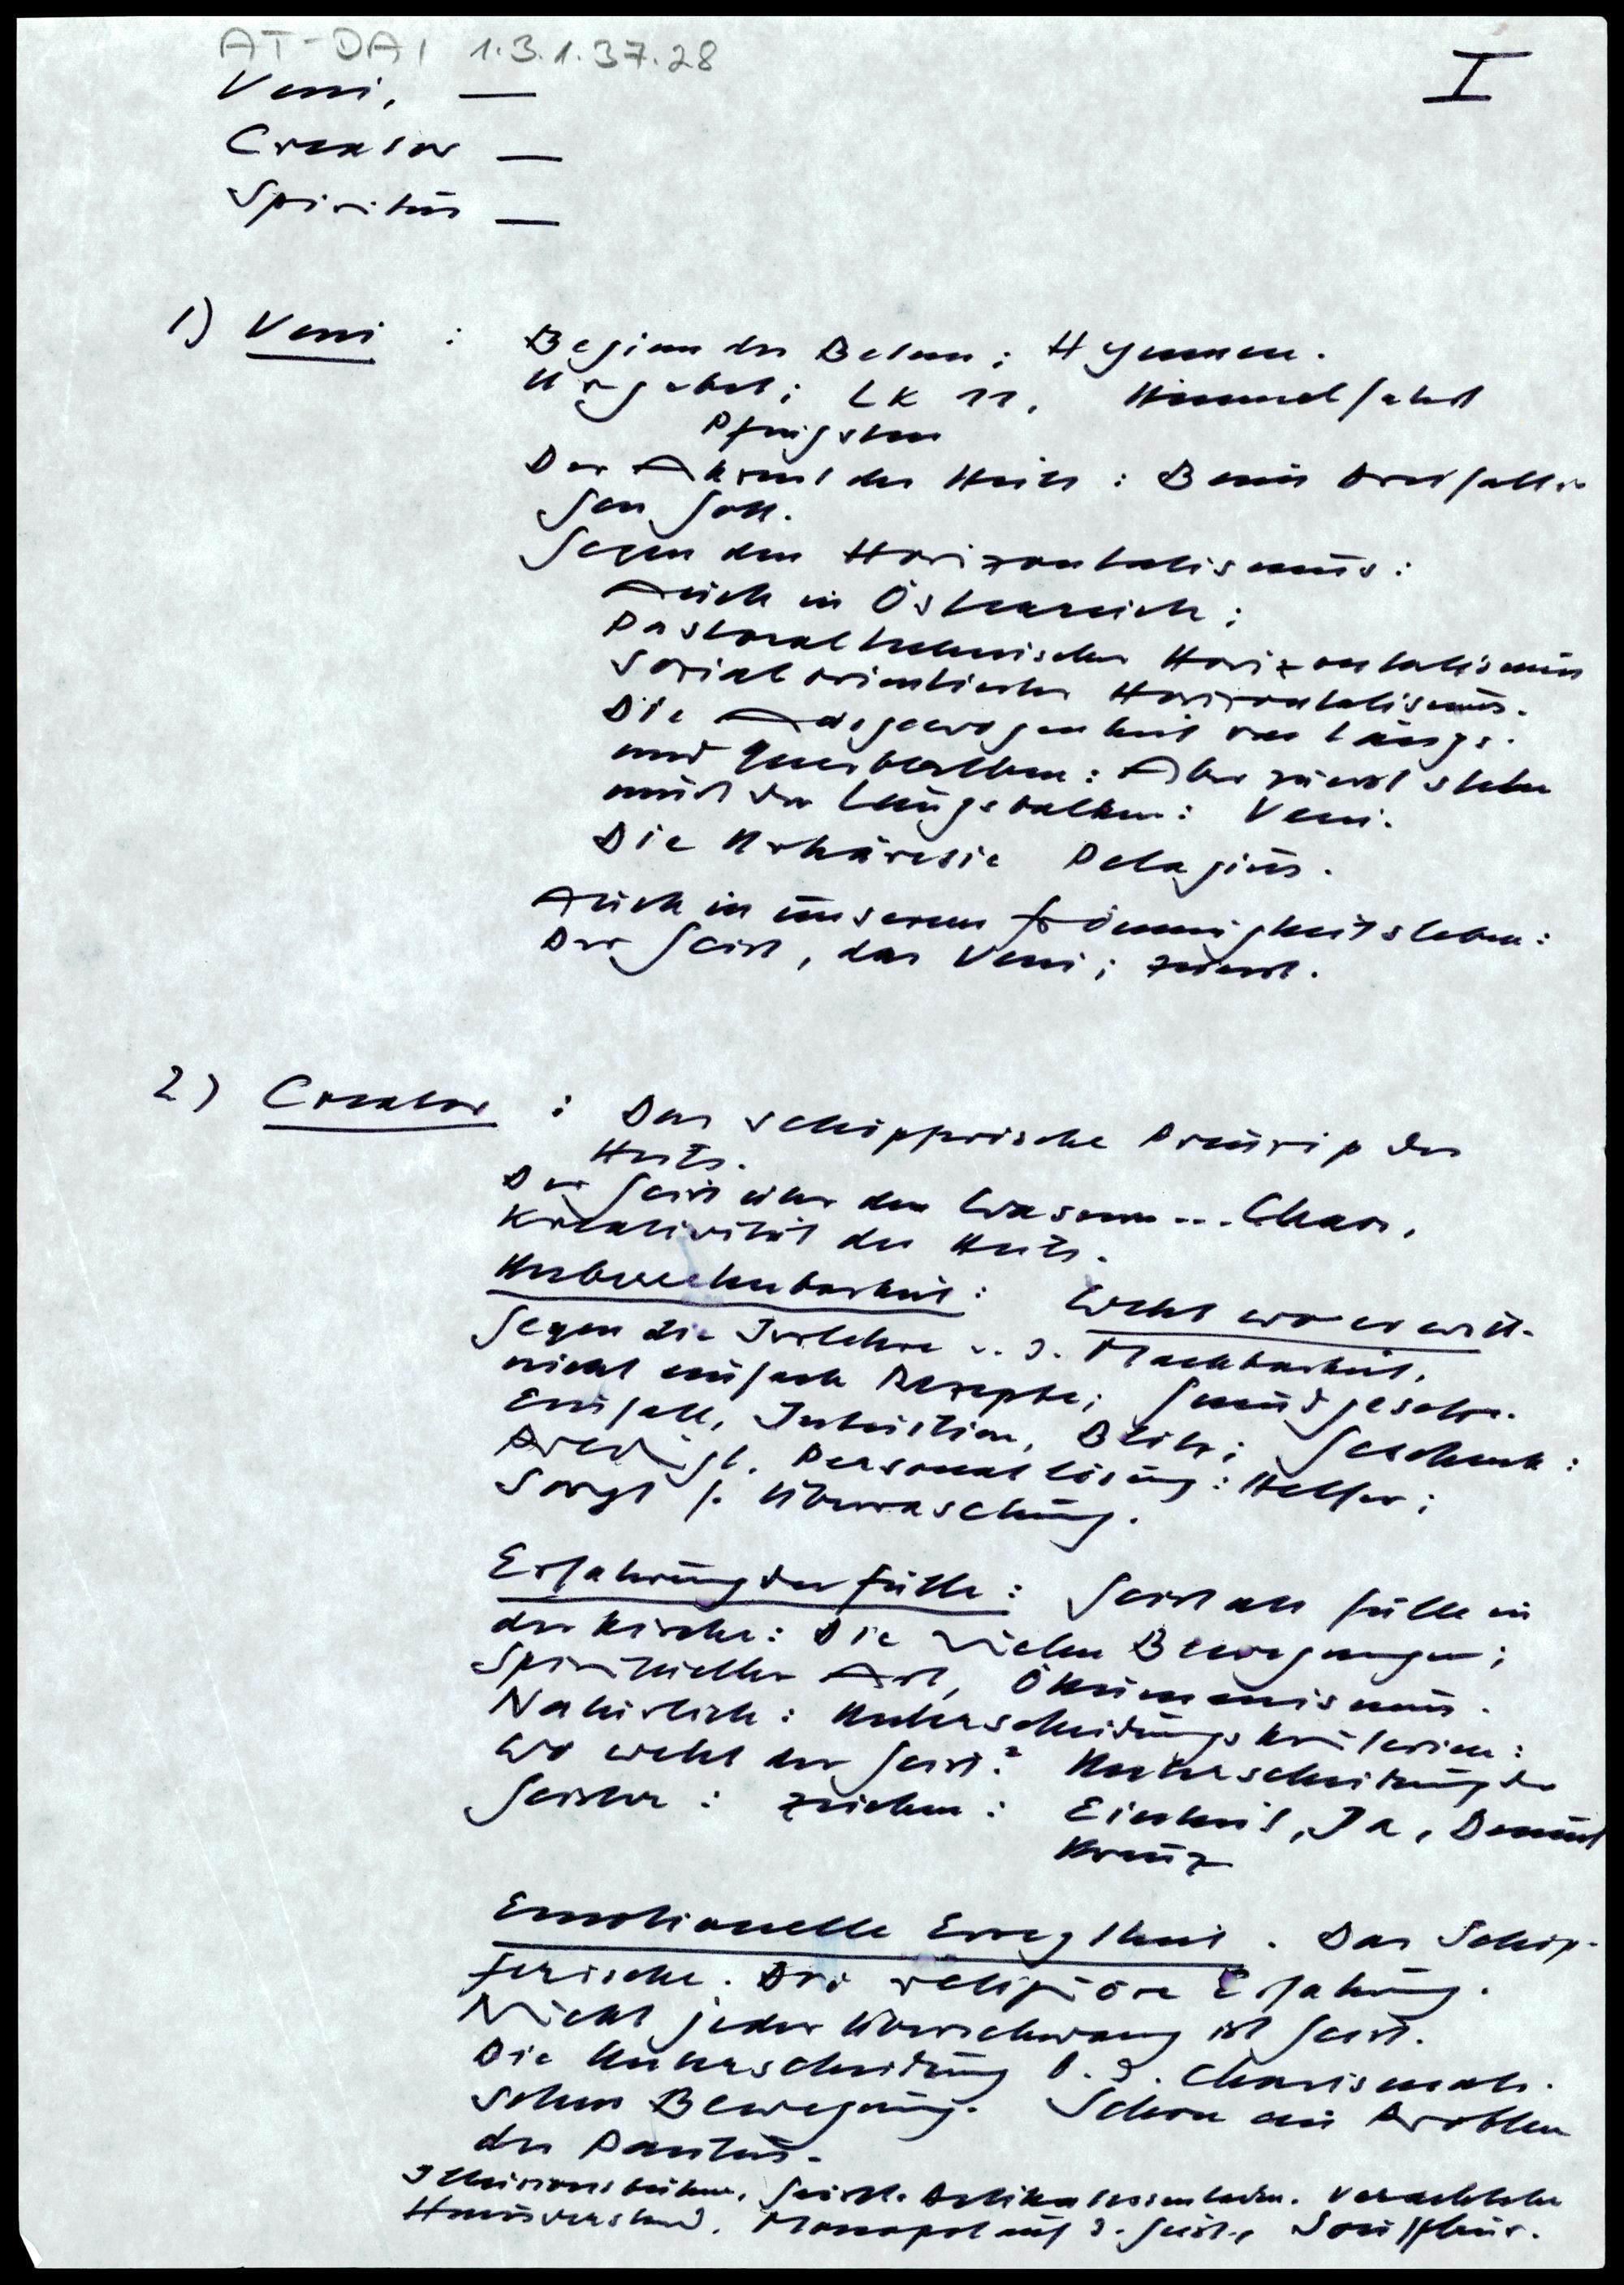 AT-DAI 1.3.1.37.28
I
Veni, —
Creator —
Spiritus —
1) Veni : Beginn des Betens; Hymnen.
Urgebet; LK 11, Himmelfahrt
Pfingsten
Der Akzent des Heils: Beim Dreifalti-
gen Gott.
Gegen den Horizontalismus:
Auch in Österreich:
Pastoraltechnischer Horizontalismus
Sozial orientierter Horizontalismus.
Die Ausgewogenheit von Längs-
und Querbalken: Aber zuerst stehen
muß der Längsbalken: Veni.
Die Urhäresie Pelagius.
Auch in unserem Frömmigkeitsleben:
Der Geist, das Veni; zuerst.
2) Creator : Das schöpferische Prinzip des
Heils.
Der Geist über den Wassern... Chaos,
Kreativität des Heils.
Unberechenbarkeit: Weht wo er will.
Gegen die Irrlehre v. d. Machbarkeit,
nicht einfach Rezepte; Grundgesetze.
Einfall, Intuition, Blitz; Geschenk:
Predigt. Personallösung: Helfer;
Sorgt f. Überraschung.
Erfahrung der Fülle: Geist als Fülle in
der Kirche: Die vielen Bewegungen;
Spiritueller Art, Ökumenismus.
Natürlich: Unterscheidungskriterien:
Wo weht der Geist? Unterscheidung der
Geister: Zeichen: Einheit, Ja, Demut
Kreuz
Emotionelle Erregtheit. Das Schöp-
ferische. Die religiöse Erfahrung.
Nicht jeder Überschwang ist Geist.
Die Unterscheidung b. d. Charismati-
schen Bewegung. Schon ein Problem
des Paulus.
Illusionsbühne, Geistl. Delikatessenladen. Verachteter
Hausverstand. Monopol auf d. Geist,